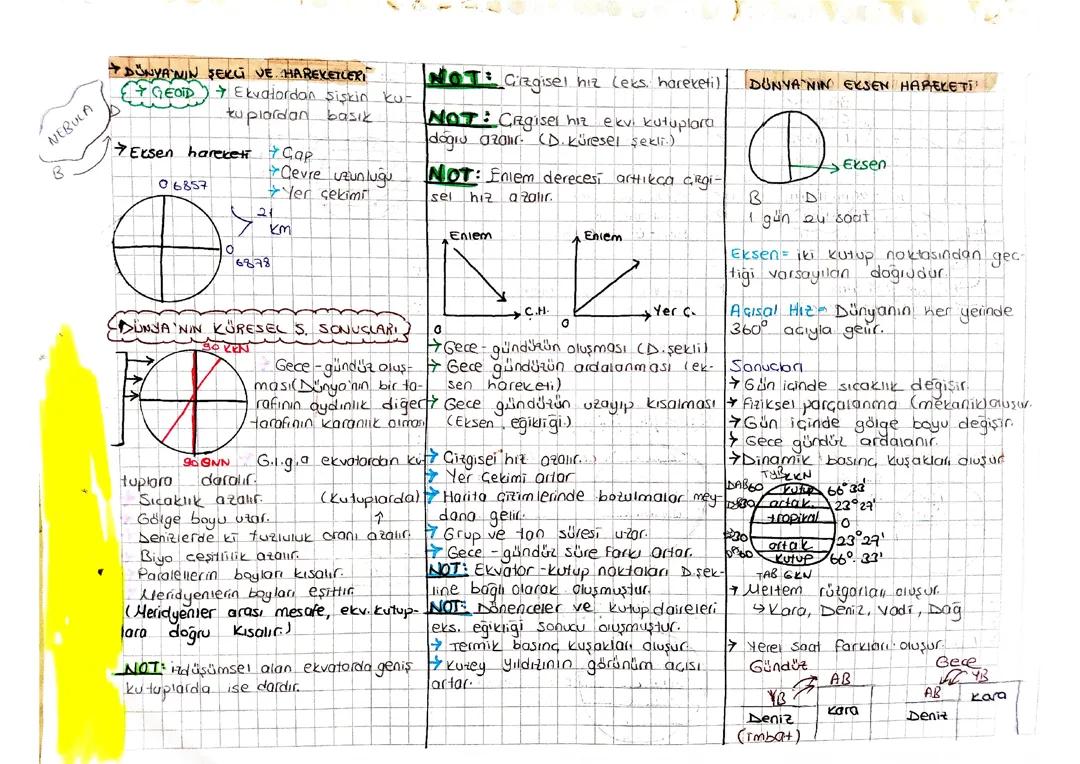 → DÜNYA'NIN ŞEKLİ VE HAREKETLERİ
→ GEOİD → Ekvatordan şişkin ku-
tuplardan basık
NEBULA
D
B
→ Eksen hareketi → Çap
→ Çevre uzunluğu
→ Yer çekimi
0 6857
21
km
0
6878
DÜNYA'NIN KÜRESEL Ş. SONUÇLARI
90 KKN
Gece-gündüz oluş-
ması (Dünya'nın bir ta-
rafının aydınlık diğer
tarafının karanlık olması
90 GNN
G.ı.g.a ekvatordan ku-
tuplara daralır.
Sıcaklık azalır. (Kutuplarda)
Gölge boyu uzar. ↑
Denizlerde ki tuzluluk oranı azalır.
Biyo çeşitlilik azalır.
Paralellerin boyları kısalır.
Meridyenlerin boyları eşittir.
(Meridyenler arası mesafe, ekv. kutup-
lara doğru kısalır.)
NOT: izdüşümsel alan ekvatorda geniş
kutuplarda ise dardır.
NOT: Çizgisel hız (eks. hareketi)
NOT: Çizgisel hız ekv. kutuplara
doğru azalır. (D. küresel şekli.)
NOT: Enlem derecesi arttıkça çizgi-
sel hız azalır.
Enlem
Ç.H.
0
Enlem
Yer Ç.
0
→ Gece-gündüzün oluşması (D. şekli)
→ Gece gündüzün ardalanması (ek-
sen hareketi)
→ Gece gündüzün uzayıp kısalması
(Eksen eğikliği.)
→ Çizgisel hız azalır.
→ Yer çekimi artar
→ Harita çizimlerinde bozulmalar mey-
dana gelir.
→ Grup ve tan süresi uzar.
→ Gece-gündüz süre farkı artar.
NOT: Ekvator-kutup noktaları D. şek-
line bağlı olarak oluşmuştur.
NOT: Dönenceler ve kutup daireleri
eks. eğikliği sonucu oluşmuştur.
→ Termik basınç kuşakları oluşur.
→ Kuzey yıldızının görünüm açısı
artar.
DÜNYA'NIN EKSEN HAREKETİ
→ Eksen
B D
1 gün 24 saat
Eksen = iki kutup noktasından geç-
tiği varsayılan doğrudur.
Açısal Hız = Dünyanın her yerinde
360° açıyla gelir.
Sonuçları
→ Gün içinde sıcaklık değişir.
→ Fiziksel parçalanma (mekanik) oluşur.
→ Gün içinde gölge boyu değişir.
→ Gece gündüz ardalanır.
→ Dinamik basınç kuşakları oluşur
TYB KKN
DAB 60 kutup 66° 33'
DYB30 ortak 23° 27'
tropikal 0
30 ortak 23° 27'
60 kutup 66° 33'
TAB GKN
→ Meltem rüzgarları oluşur.
↳ Kara, Deniz, Vadi, Dağ
→ Yerel saat farkları oluşur.
Gündüz
AB
YB
Deniz
kara
(imbat)
Gece
YB
AB
kara
Deniz